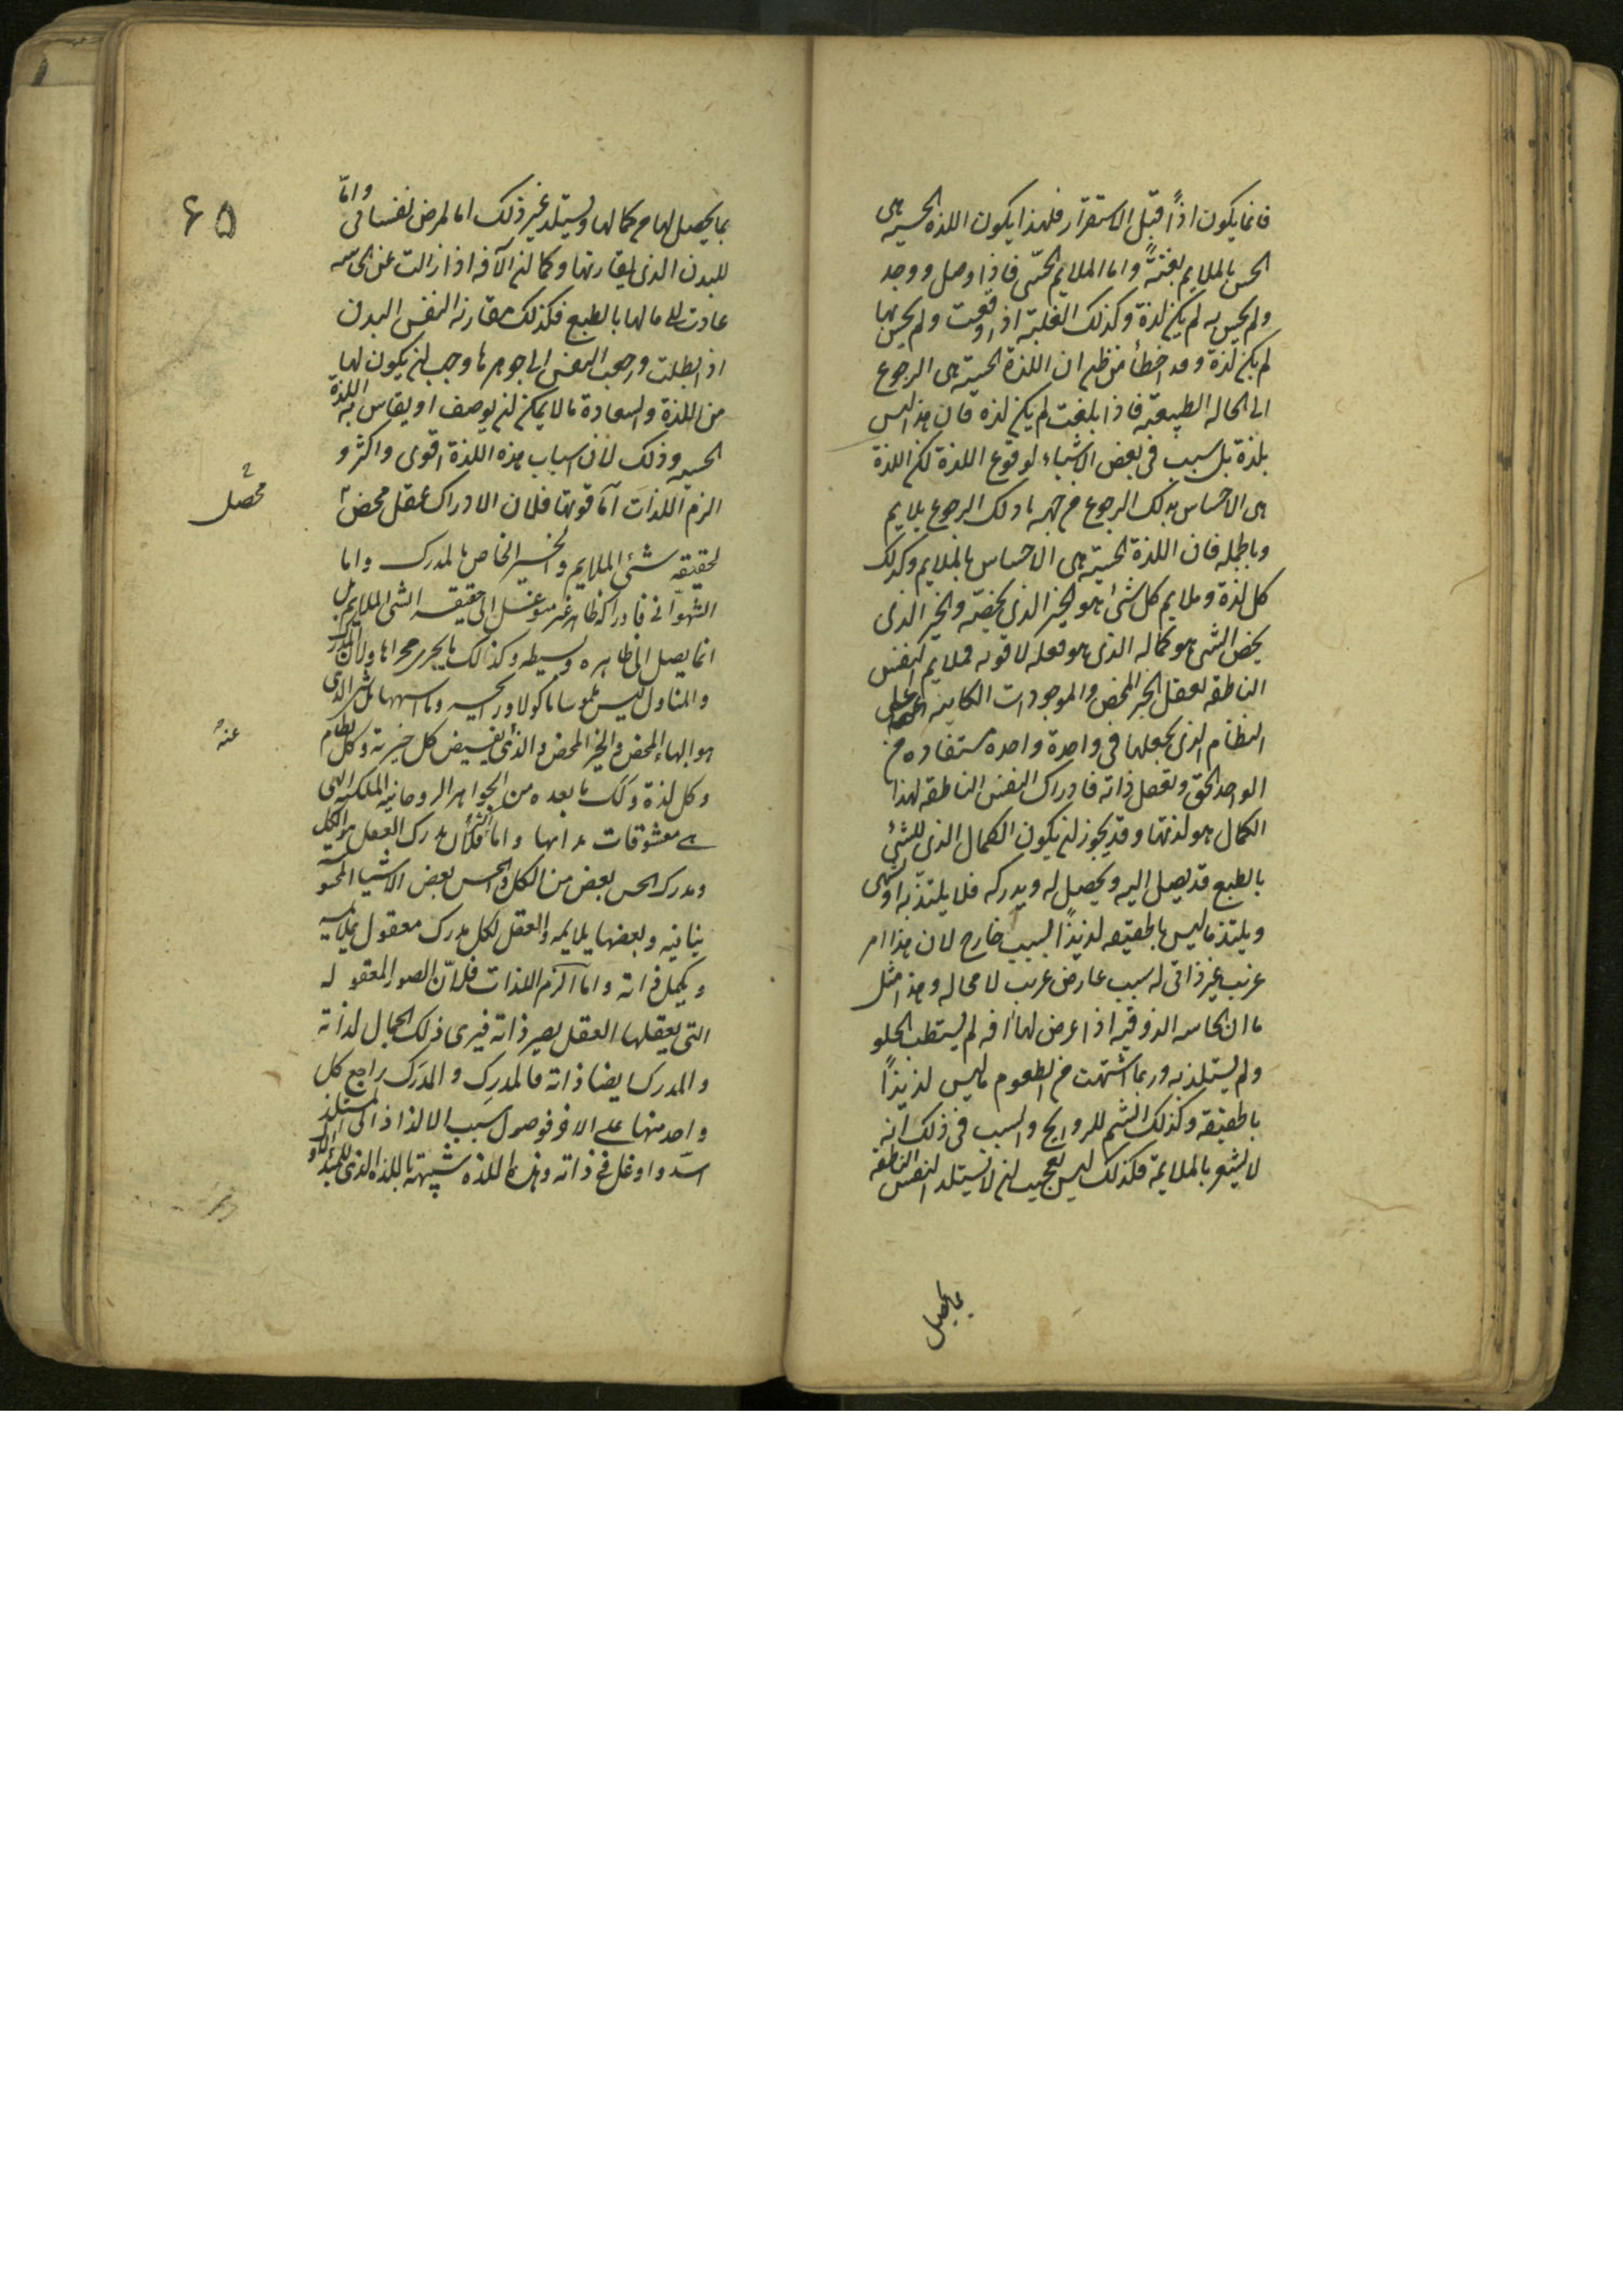 فانما يكون اذاً قبل الاستقرار فلهذا يكون اللذه الحسيه هى
الحس بالملايم بغتةً واما الملايم الحسّى فاذا وصل ووجد
ولم يحس به لم يكن لذة وكذلك الغلبة اذا وقعت ولم يحس بها
لم يكن لذة وقد اخطأ من ظن ان اللذة الحسية هى الرجوع
الى الحاله الطبيعيّة فاذا بلغت لم يكن لذه فان هذا ليس
بلذة بل سبب فى بعض الاشياء لوقوع اللذة لكن اللذة
هى الاحساس بذلك الرجوع من جهه ما ذلك الرجوع ملايم
وبالجمله فان اللذة الحسيّة هى الاحساس بالملايم وكذلك
كل لذة وملايم كل شئ هو الخير الذى يخصّه والخير الذى
يخص الشئ هو كماله الذى هو فعله لا قوته فملايم النفس
الناطقه تعقل الخير المحض والموجودات الكاينه عنه على
النظام الذى يجعلها فى واحدة واحدة مستفاده من
الواحد الحق وتعقل ذاته فادراك النفس الناطقه لهذا
الكمال هو لذتها وقد يجوز ان يكون الكمال الذى للشئ
بالطبع قد يصل اليه ويحصل له ويدركه فلا يلتذّ به او يشتهى
ويلتذ ما ليس بالحقيقه لذيذاً لسبب خارج لان هذا امر
غريب غير ذاتى له سبب عارض غريب لا محاله وهذا مثل
ما ان الحاسه الذوقيه اذا عرض لها افه لم يستطب الحلو
ولم يستلذ به وربما اشتهت من الطعوم ما ليس لذيذاً
بالحقيقه وكذلك الشم للروايح والسبب فى ذلك انه
لا يشعر بالملايمة فكذلك ليس بعجيب ان لا يستلذ النفس الناطقه
بما يحصل
۶۵
بما يحصل لها من كمالها ويستلذ غير ذلك اما لمرض نفسانى واما
للبدن الذى يقارنها وكما ان الآفه اذا زالت عن الحاسه
عادت الى ما لها بالطبع فكذلك مقارنه النفس البدن
اذا بطلت ورجعت النفس الى جوهرها وجب ان يكون لها
من اللذة والسعادة ما لا يمكن ان يوصف او يقاس به اللذة
الحسيه وذلك لان اسباب هذه اللذة اقوى واكثر و
الزم اللذات اما قوتها فلان الادراك عقل محض
محصّل
لحقيقه شئ الملايم والخير الخاص بالمدرك واما
الشهوانى فادراكه ظاهر غير متوغل الى حقيقه الشئ الملايم بل
انما يصل الى ظاهره وبسيطه وكذلك ما يجرى مجراها ولان المدرك
والمتناول ليس ملموسا ماكولا ورايحه وما اشبهها بل شئ الذى
هو البهاء المحض والخير المحض والذى يفيض كل خيرية وكل نظام
عنه
وكل لذة وكذلك ما بعده من الجواهر الروحانيه الملكيه التى
هى معشوقات بذاتها واما اكثرها فلأن مدرك العقل هو الكل
ومدرك الحس بعض من الكل والحس بعض الاشيا المحسوسه
ينافيه وبعضها يلايمه والعقل لكل مدرك معقول يلايمه
ويكمل ذاته واما الزم اللذات فلانّ الصور المعقوله
التى يعقلها العقل يصير ذاته فيرى ذلك الجمال لذاته
والمدرك ايضا ذاته فالمدرِك والمدرَك راجع كل
واحد منها على الاخر فوصول سبب الالذاذ الى المستلذ
اشدّ واوغل فى ذاته وهذه اللذه شبيهة باللذه الذى للمبدأ الاول